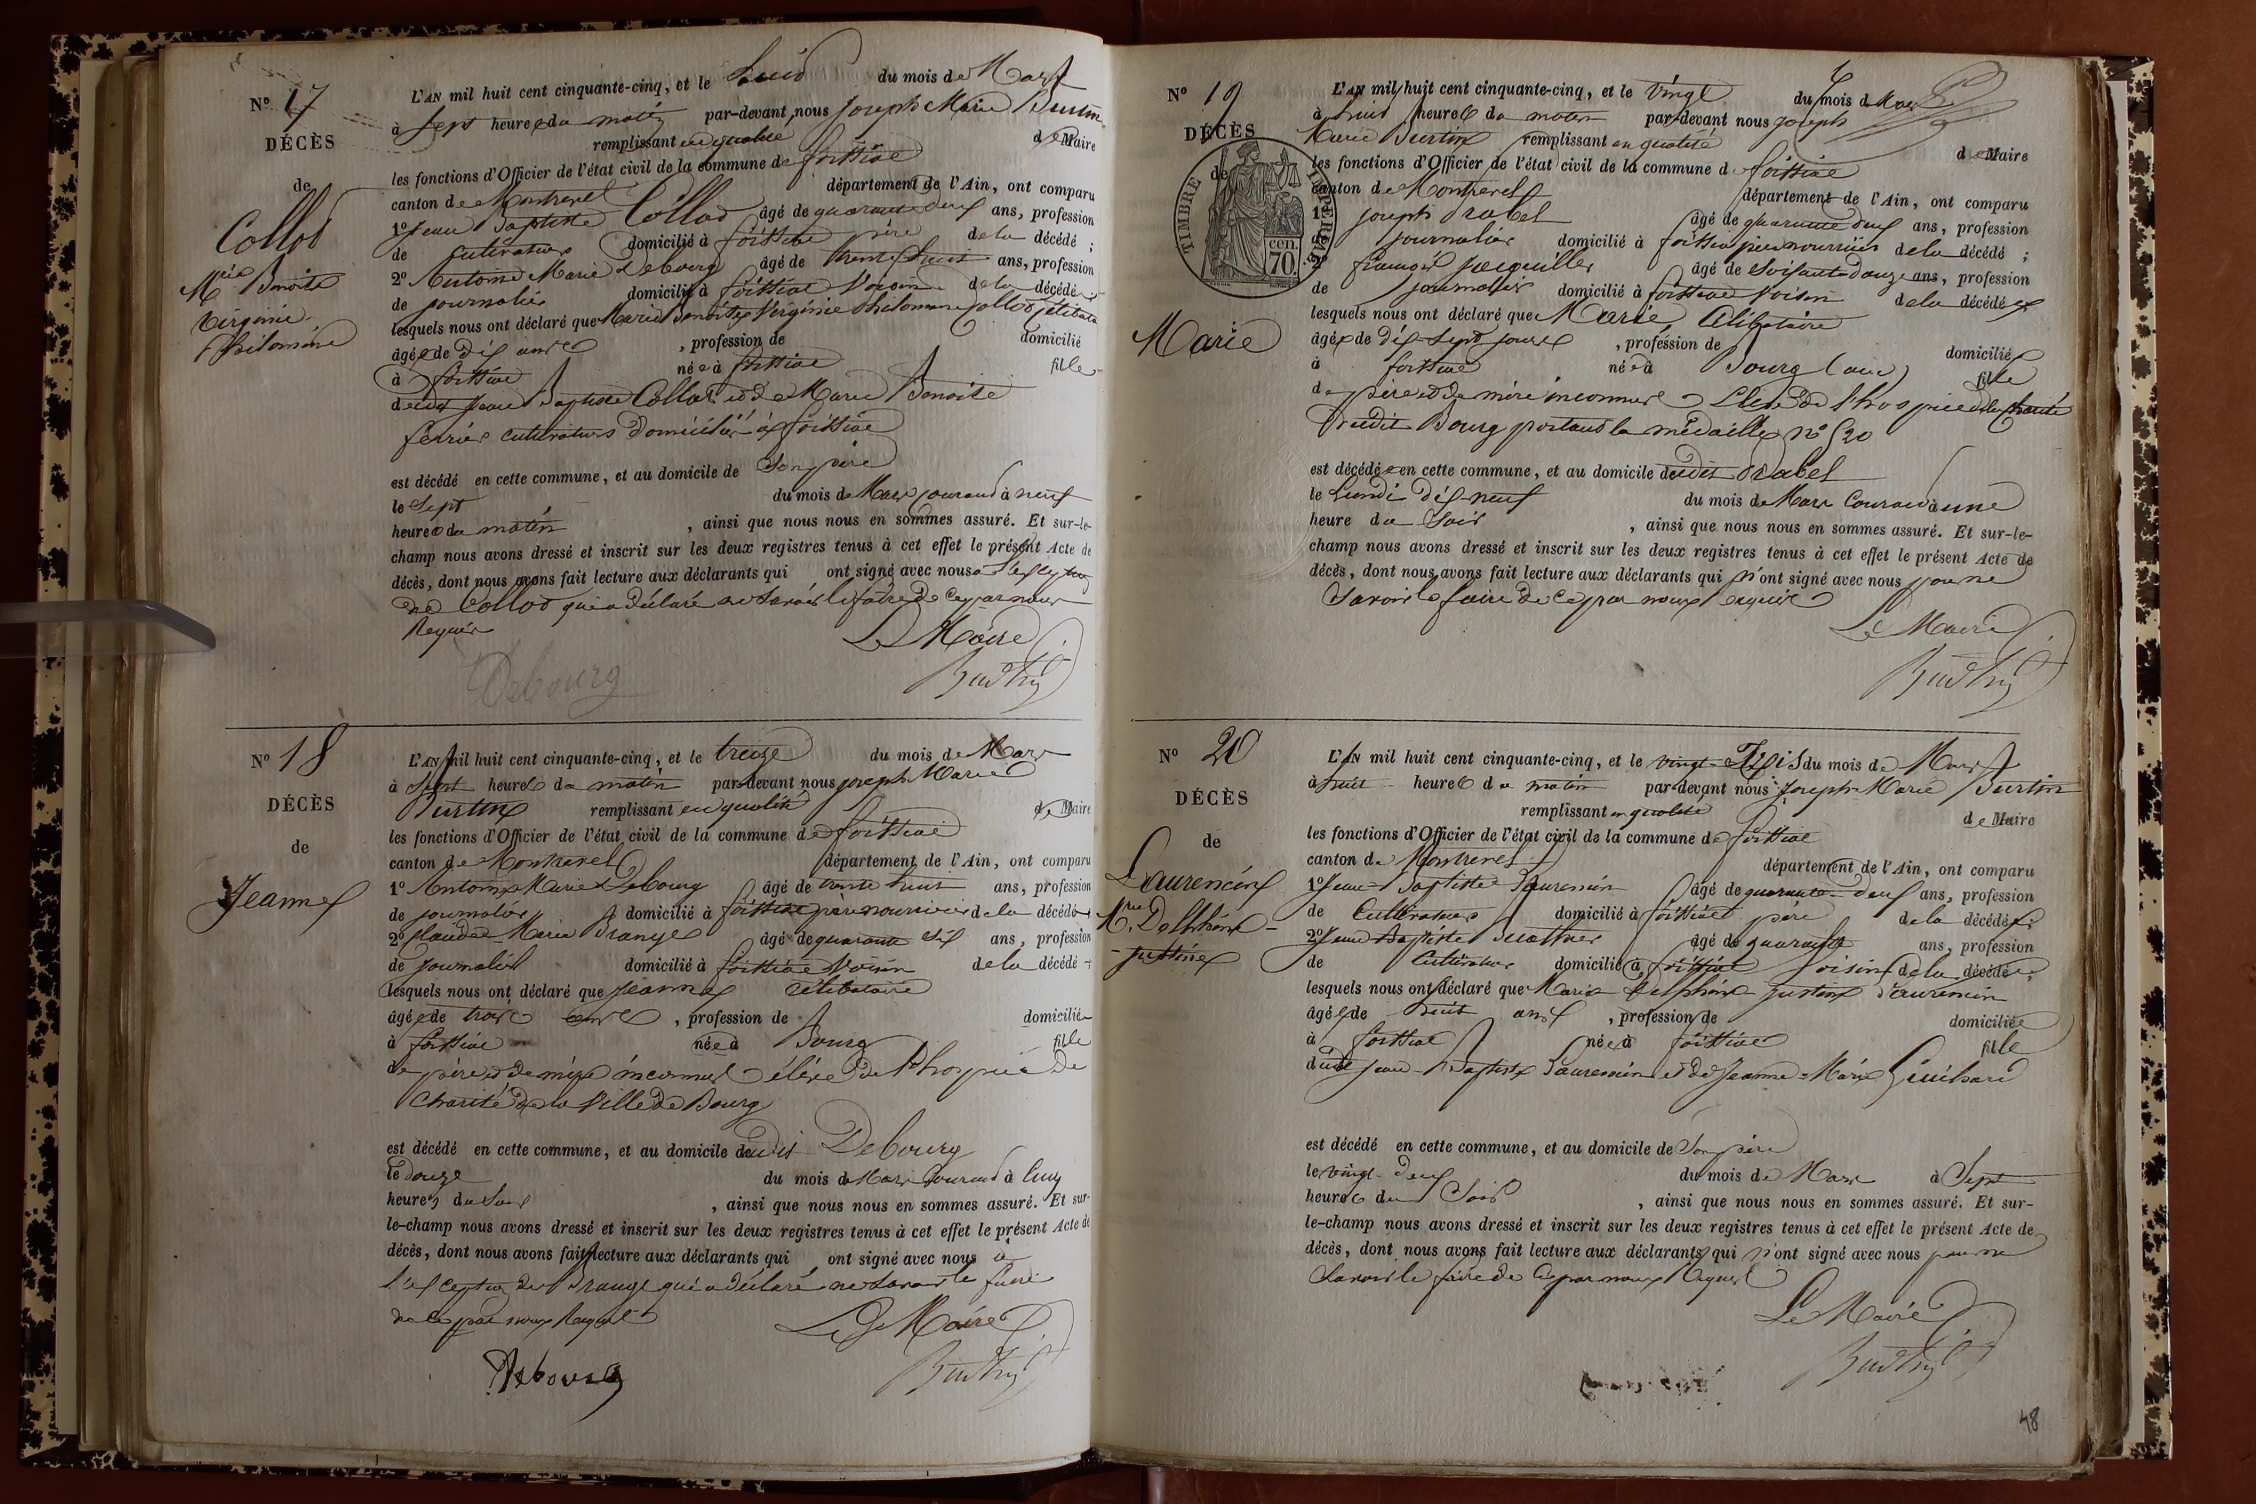 N° 17
DÉCÈS
de
Collot
Mie Benoite
Virginie
Philomène
L'AN mil huit cent cinquante-cinq, et le huit du mois de Mars
à sept heures du matin par-devant nous Joseph Marie Burtin
remplissant en qualité de Maire
les fonctions d'Officier de l'état civil de la commune de foissiat
canton de Montrevel département de l'Ain, ont comparu
1° Jean Baptiste Collot âgé de quarante deux ans, profession
de cultivateur domicilié à foissiat père de la décédé ;
2° Antoine Marie Debourg âgé de trente huit ans, profession
de journalier domicilié à foissiat Voisin de la décédée
lesquels nous ont déclaré que Marie Benoite Virginie Philomène Collot célibataire
âgée de dix ans , profession de domicilié
à foissiat née à foissiat fille
dudit Jean Baptiste Collot et de Marie Benoite
ferrier cultivateurs domiciliés à foissiat
est décédé en cette commune, et au domicile de Son père
le sept du mois de Mars courant à neuf
heures du matin , ainsi que nous nous en sommes assuré. Et sur-le-
champ nous avons dressé et inscrit sur les deux registres tenus à cet effet le présent Acte de
décès, dont nous avons fait lecture aux déclarants qui ont signé avec nous a l'exception
de Collot qui a déclaré ne savoir le faire de ce par nous
Requis
Le Maire
Debourg
Burtin
N° 18
DÉCÈS
de
Jeanne
L'AN mil huit cent cinquante-cinq, et le treize du mois de Mars
à sept heures du matin par-devant nous joseph Marie
Burtin remplissant en qualité de Maire
les fonctions d'Officier de l'état civil de la commune de foissiat
canton de Montrevel département de l'Ain, ont comparu
1° Antoine Marie Debourg âgé de trente huit ans, profession
de journalier domicilié à foissiat père nourricier de la décédée
2° Claude Marie Brange âgé de quarante six ans, profession
de journalier domicilié à foissiat Voisin de la décédé
lesquels nous ont déclaré que Jeanne célibataire
âgée de trois ans , profession de domiciliée
à foissiat née à Bourg fille
de père et de mère inconnus élève de l'hospice de
Charité de la Ville de Bourg
est décédé en cette commune, et au domicile dudit Debourg
le douze du mois de Mars Courant à Cinq
heures du Soir , ainsi que nous nous en sommes assuré. Et sur-
le-champ nous avons dressé et inscrit sur les deux registres tenus à cet effet le présent Acte de
décès, dont nous avons fait lecture aux déclarants qui ont signé avec nous a
l'exception de Brange qui a déclaré ne savoir le faire
de ce par nous Requis
Le Maire
Debourg
Burtin
N° 19
DÉCÈS
de
TIMBRE IMPERIAL
cen.
70
Marie
L'AN mil huit cent cinquante-cinq, et le vingt du mois de Mars
à huit heures du matin par-devant nous joseph
Marie Burtin remplissant en qualité
de Maire
les fonctions d'Officier de l'état civil de la commune de foissiat
canton de Montrevel département de l'Ain, ont comparu
1° joseph Rabel âgé de quarante deux ans, profession
de journalier domicilié à foissiat père nourricier de la décédé ;
2° françois jacquiller âgé de soisante douze ans, profession
de journalier domicilié à foissiat Voisin de la décédé
lesquels nous ont déclaré que Marie Célibataire
âgée de dix-sept jours , profession de domiciliée
à foissiat née à Bourg (ain) fille
de père et de mère inconnus Elève de l'hospice de Charité
dudit Bourg portant la médaille n° 520
est décédée en cette commune, et au domicile dudit Rabel
le Lundi dix-neuf du mois de Mars Courant à une
heure du Soir , ainsi que nous nous en sommes assuré. Et sur-le-
champ nous avons dressé et inscrit sur les deux registres tenus à cet effet le présent Acte de
décès, dont nous avons fait lecture aux déclarants qui n'ont signé avec nous pour ne
savoir le faire de ce par nous requis
Le Maire
Burtin
N° 20
DÉCÈS
de
Laurencin
Mie Delphine
justine
L'AN mil huit cent cinquante-cinq, et le vingt-trois du mois de Mars
à huit heures du matin par-devant nous Joseph Marie Burtin
remplissant en qualité de Maire
les fonctions d'Officier de l'état civil de la commune de foissiat
canton de Montrevel département de l'Ain, ont comparu
1° Jean-Baptiste Laurencin âgé de quarante-deux ans, profession
de Cultivateur domicilié à foissiat père de la décédée
2° Jean Baptiste âgé de quarante ans, profession
de Cultivateur domicilié à foissiat Voisin de la décédée
lesquels nous ont déclaré que Marie Delphine justine Laurencin
âgée de huit ans , profession de domiciliée
à foissiat née à foissiat fille
dudit Jean-Baptiste Laurencin et de Jeanne-Marie Guichard
est décédé en cette commune, et au domicile de Son père
le vingt-deux du mois de Mars à Sept
heures du Soir , ainsi que nous nous en sommes assuré. Et sur-
le-champ nous avons dressé et inscrit sur les deux registres tenus à cet effet le présent Acte de
décès, dont nous avons fait lecture aux déclarants qui n'ont signé avec nous pour ne
Savoir le faire de ce par nous Requis
Le Maire
Burtin
48